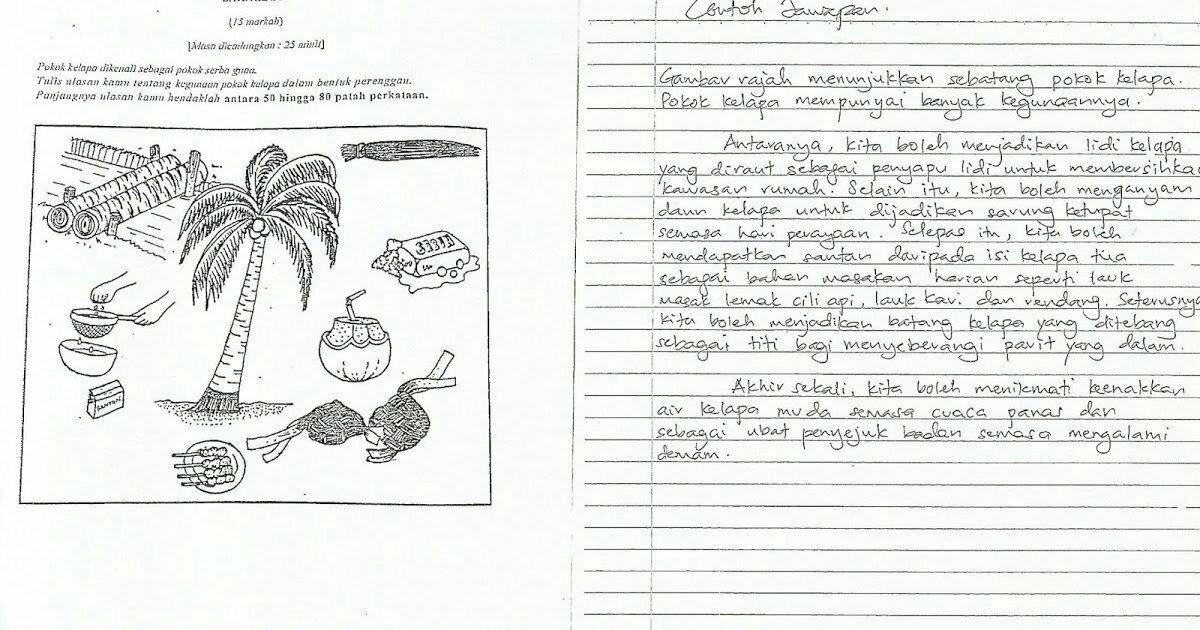 (15 markah)
[Masa dicadangkan : 25 minit]
Pokok kelapa dikenali sebagai pokok serba guna.
Tulis ulasan kamu tentang kegunaan pokok kelapa dalam bentuk perenggan.
Panjangnya ulasan kamu hendaklah antara 50 hingga 80 patah perkataan.
SANTAN
Contoh Jawapan.
Gambar rajah menunjukkan sebatang pokok kelapa.
Pokok kelapa mempunyai banyak kegunaannya.
Antaranya, kita boleh menjadikan lidi kelapa
yang diraut sebagai penyapu lidi untuk membersihka
kawasan rumah. Selain itu, kita boleh menganyam
daun kelapa untuk dijadikan sarung ketupat
semasa hari perayaan. Selepas itu, kita boleh
mendapatkan santan daripada isi kelapa tua
sebagai bahan masakan harian seperti lauk
masak lemak cili api, lauk kari dan rendang. Seterusnya
kita boleh menjadikan batang kelapa yang ditebang
sebagai titi bagi menyeberangi parit yang dalam.
Akhir sekali, kita boleh menikmati keenakkan
air kelapa muda semasa cuaca panas dan
sebagai ubat penyejuk badan semasa mengalami
demam.